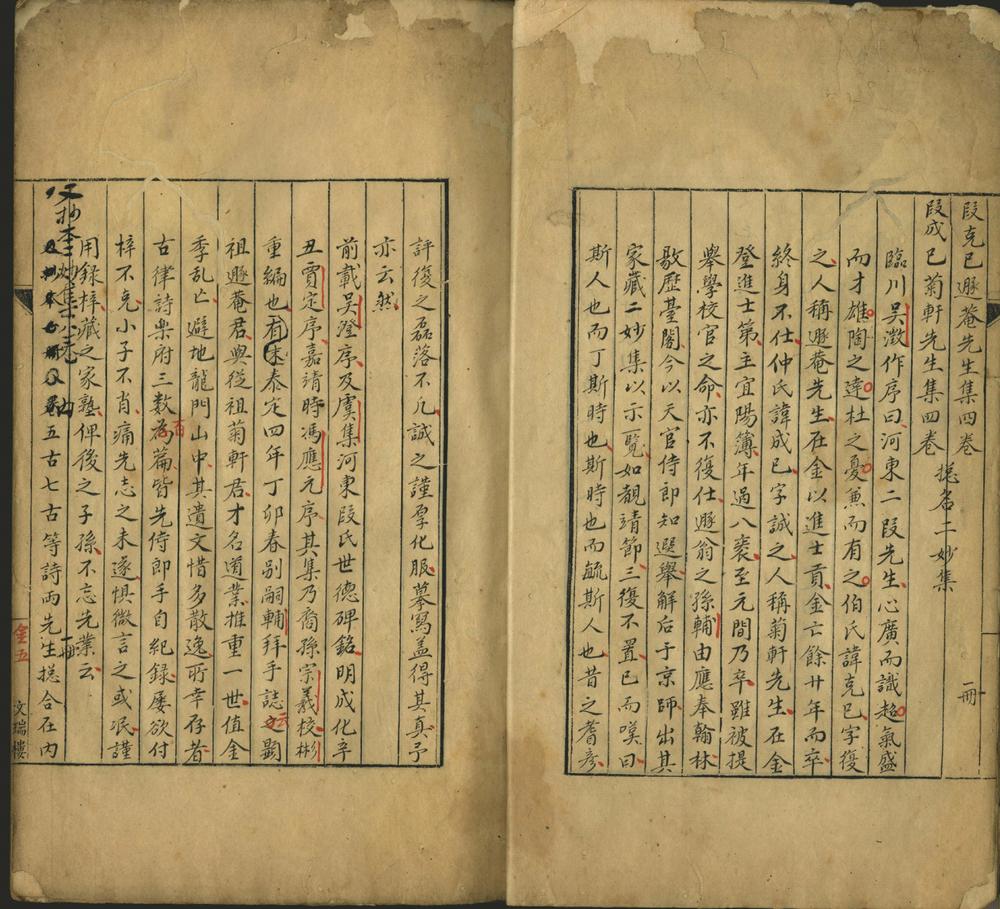 段克已遯菴先生集四卷
段成已菊軒先生集四卷
揔名二妙集
一冊
臨川吴澂作序曰河東二段先生心廣而識超氣盛
而才雄陶之達杜之憂兼而有之伯氏諱克已字復
之人稱遯菴先生在金以進士貢金亡餘廿年而卒
終身不仕仲氏諱成已字誠之人稱菊軒先生在金
登進士第主宜陽簿年過八袠至元間乃卒雖被提
舉學校官之命亦不復仕遯翁之孫輔由應奉翰林
敭歷臺閣今以天官侍郎知選舉解后于京師出其
家藏二妙集以示一覽如覩靖節三復不置已而嘆曰
斯人也而丁斯時也斯時也而毓斯人也昔之耆彦
評復之磊落不凡誠之謹厚化服摹寫盖得其真予
亦云然
前載吴澄序及虞集河東段氏世德碑銘明成化辛
丑賈定序嘉靖時馮應元序其集乃裔孫宗義校彬
重編也有末泰定四年丁卯春别嗣輔拜手誌云顕
祖遯菴君與從祖菊軒君才名道業推重一世值金
季乱亡避地龍門山中其遺文惜多散逸所幸存者
古律詩樂府三数百篇皆先侍郎手自紀録屢欲付
梓不克小子不肖痛先志之未遂惧微言之或泯謹
用録梓藏之家塾俾後之子孫不忘先業云
又抄本二妙集
五古七古等詩两先生揔合在内
一冊
金五
文瑞樓